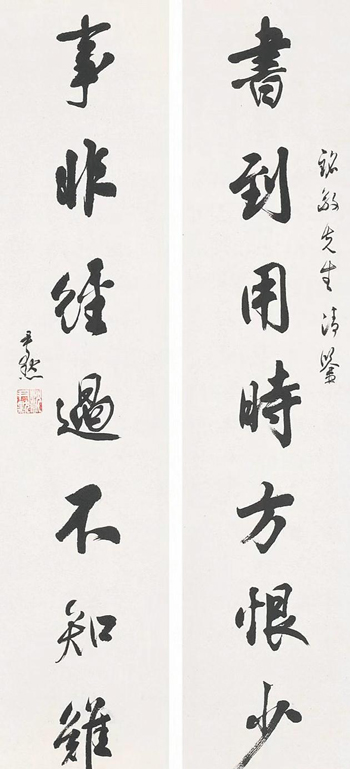 書到用時方恨少
銘敏先生清鑒
事非經過不知難
尹默